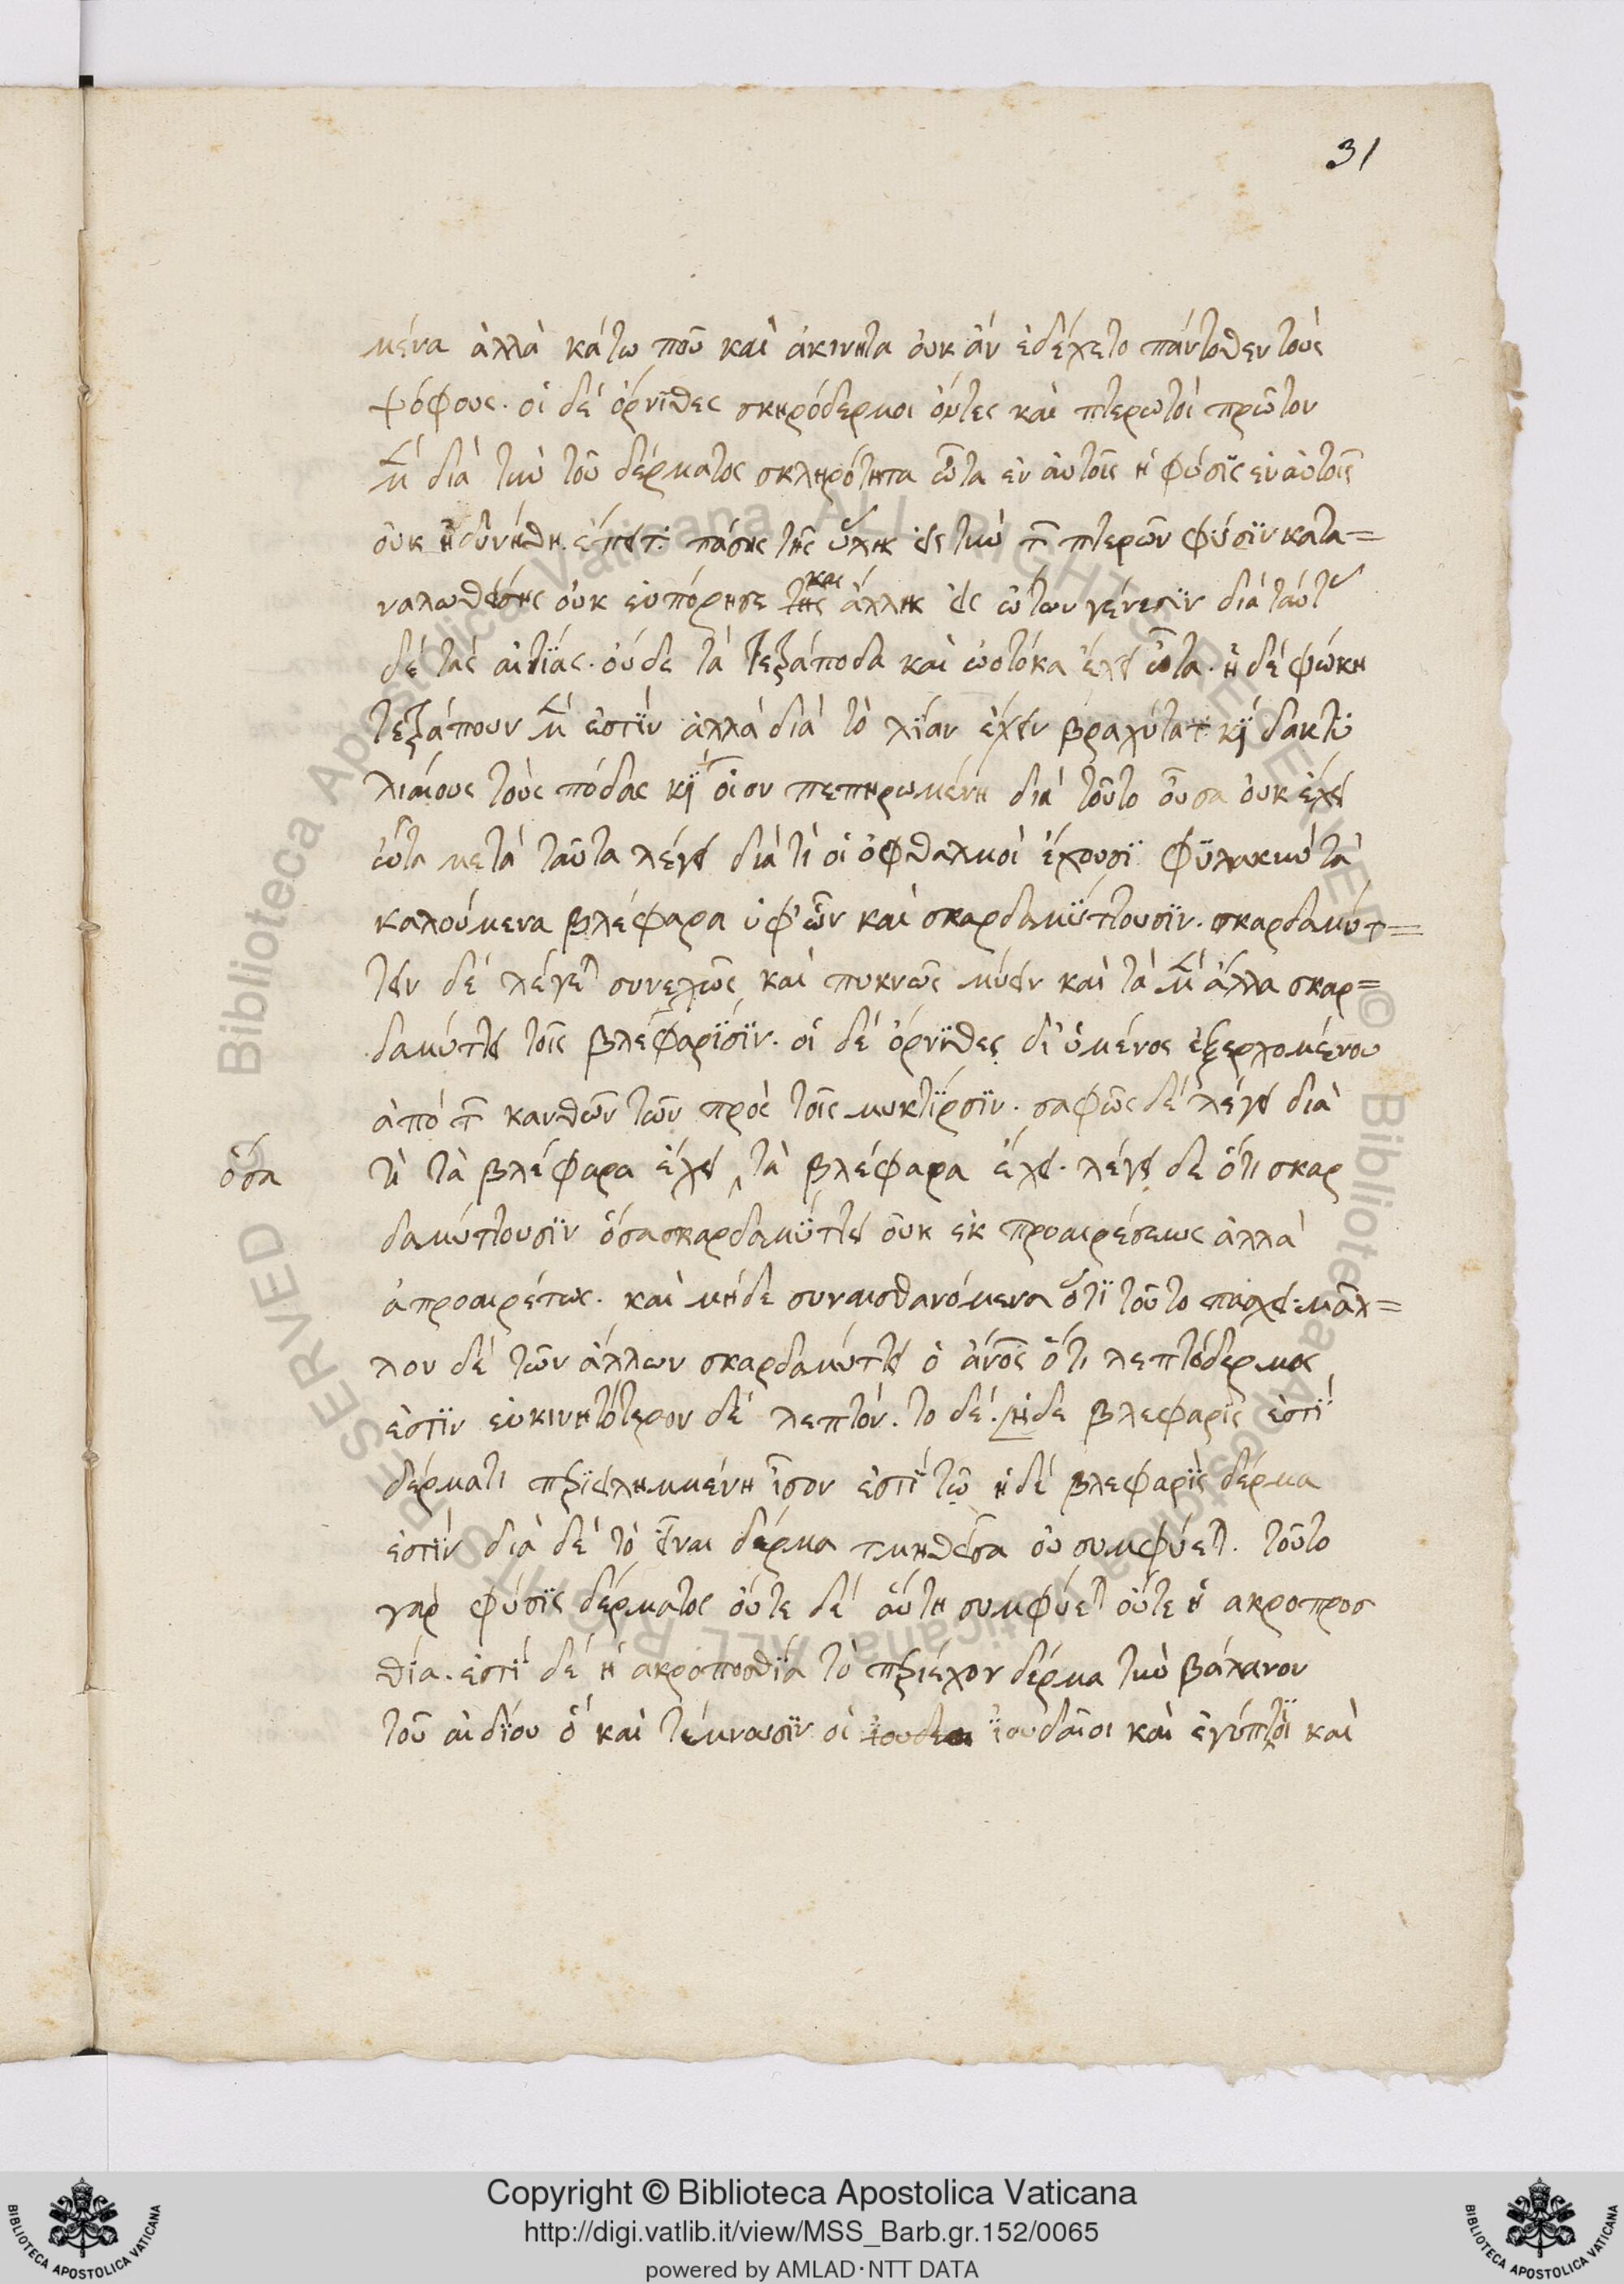 31
μένα ἀλλὰ κάτω ποῦ καὶ ἀκίνητα οὐκ ἂν ἐδέχετο πάντοθεν τοὺς
ψόφους. οἱ δὲ ὄρνϊθες σκηρόδερμοι ὄντες καὶ πτερωτοὶ πρῶτον
μ̈ διὰ τὴν τοῦ δέρματος σκληρότητα ὦτα ἐν αὐτοῖς ἡ φύσϊς ἐν αὐτοῖς
οὐκ ἠδυνήθη πάσης τῆς ὕλης εἰς τὴν τ̅ πτερῶν φύσϊν κατα=
ναλωθείσης οὐκ εὐπόρησε τῆς και ἄλλης εἰς ὤτων γένεσϊν διὰ ταύτ
δὲ τὰς αἰτϊάς. οὐδὲ τὰ τετράποδα καὶ ὠοτόκα ἔχει ὦτα. ἡ δὲ φώκη
τετράπουν μ̈ ἐστϊν ἀλλὰ διὰ τὸ λϊάν ἔχειν βραχύτατ κὶ δακτυ
λιαίους τοὺς πόδας κὶ οἷον πεπηρωμένη διὰ τοῦτο οὖσα οὐκ ἔχει
ὦτα μετὰ ταῦτα λέγει διὰ τὶ οἱ ὀφθαλμοὶ ἔχουσϊ φϋλακὴν τὰ
καλούμενα βλέφαρα ὑφ' ὧν καὶ σκαρδαμϋττουσϊν. σκαρδαμύτ=
τειν δὲ λέγετ συνεχῶς καὶ πυκνῶς μύειν καὶ τὰ μ̈ ἄλλα σκαρ=
δαμύττει τοῖς βλεφαρϊσϊν. οἱ δὲ ὄρνϊθες δι' ὑμένος ἐξερχομένου
ἀπὸ τ̅ κανθῶν τῶν πρὸς τοῖς μυκτϊρσϊν. σαφῶς δὲ λέγει διὰ
ὅσα
τὶ τὰ βλέφαρα ἔχει ‸ τὰ βλέφαρα ἔχει. λέγει δὲ ὅτι σκαρ
δαμύττουσϊν ὅσα σκαρδαμϋττει οὐκ ἐκ προαιρέσεως ἀλλὰ
ἀπροαιρέτως. καὶ μηδὲ συναισθανόμενα ὅτϊ τοῦτο πάσχει. μᾶλ=
λον δὲ τῶν ἄλλων σκαρδαμύττει ὁ ἄνος ὅτι λεπτόδερμος
ἐστϊν εὐκινητότερον δὲ λεπτόν. το δέ. ἡ δε βλεφαρὶς ἐστϊ
δέρματι πριειλημμένη ἴσον ἐστϊ τῷ ἡ δὲ βλεφαρϊς δέρμα
ἐστϊν διὰ δὲ τὸ εἶναι δέρμα τμηθεῖσα οὐ συμφύετ. τοῦτο
γὰρ φύσϊς δέρματος οὔτε δὲ αὕτη συμφύετ οὔτε ἡ ακροπροσ
θία. ἐστϊ δὲ ἡ ακροποσθϊα τὸ πριέχον δέρμα τὴν βάλανον
τοῦ αἰδϊου ὃ καὶ τέμνωσϊν οἱ ϊουδαῖοι καὶ ἐγύπτοϊ καὶ
Copyright © Biblioteca Apostolica Vaticana
http://digi.vatlib.it/view/MSS_Barb.gr.152/0065
powered by AMLAD·NTT DATA